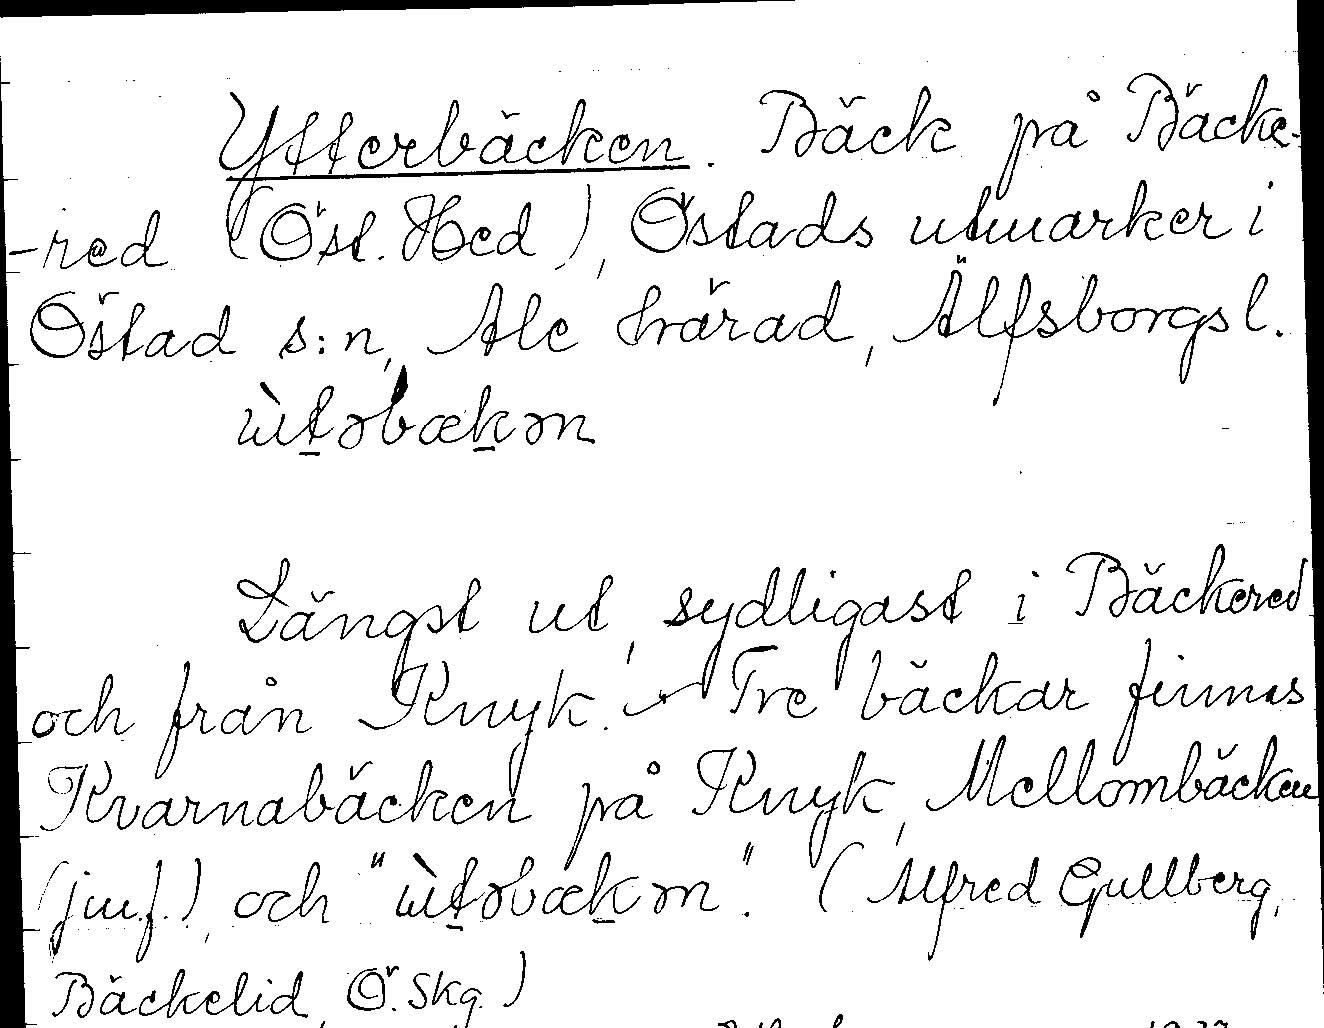 Ytterbäcken. Bäck på Bäcke-
-red (Öst. Hed), Östads utmarker i
Östad s:n, Ale härad, Älfsborgs l.
ẁtərbækən
Längst ut, sydligast i Bäckered
och från Knyk. - Tre bäckar finnas
Kvarnabäcken på Knyk, Mellombäcken
(jmf.), och "ẁtərbækən". (Alfred Gullberg,
Bäckelid Ö. Skg.)